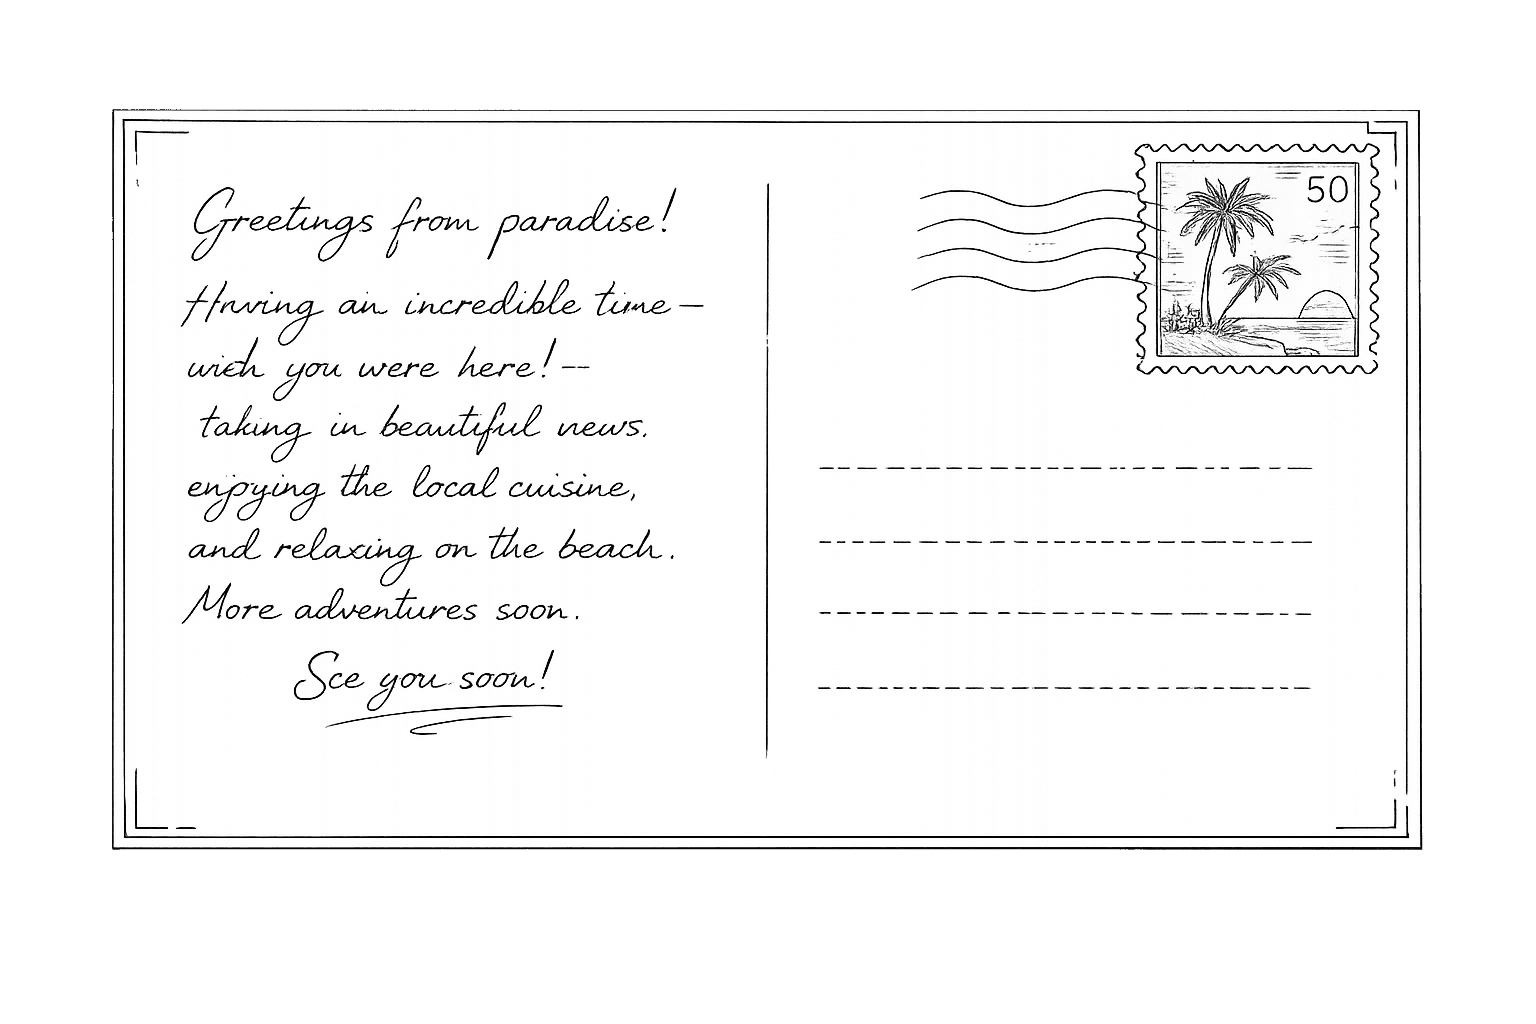 Greetings from paradise!
Having an incredible time –
wish you were here! --
taking in beautiful news.
enjoying the local cuisine,
and relaxing on the beach.
More adventures soon.
See you soon!
50